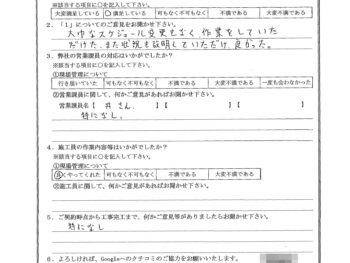 ※該当する項目に○を記入して下さい。
大変満足している 満足している 可もなく不可もなく 不満である 大変不満である
2.「1」についてのご意見をお聞かせ下さい。
大巾なスケジュール変更もなく、作業をしていた
だけた、また状況も説明していただけ、良かった。
3.弊社の営業課員の対応はいかがでしたか?
※該当する項目に○を記入して下さい。
①現場管理について
行き届いていた 可もなく不可もなく 不満である 大変不満である 一度も会わなかった
②営業課員に関して、何かご意見があればお聞かせ下さい。
営業課員名【 井さん、 】【 】
特になし、
4.施工員の作業内容等はいかがでしたか?
※該当する項目に○を記入して下さい。
①現場管理について
良くやってくれた 可もなく不可もなく 不満である 大変不満である
②施工員に関して、何かご意見があればお聞かせ下さい。
5.ご契約時点から工事完工まで、何かご意見等がありましたらお聞かせ下さい。
特になし
6.よろしければ、Googleへのクチコミのご協力をお願いいたします。